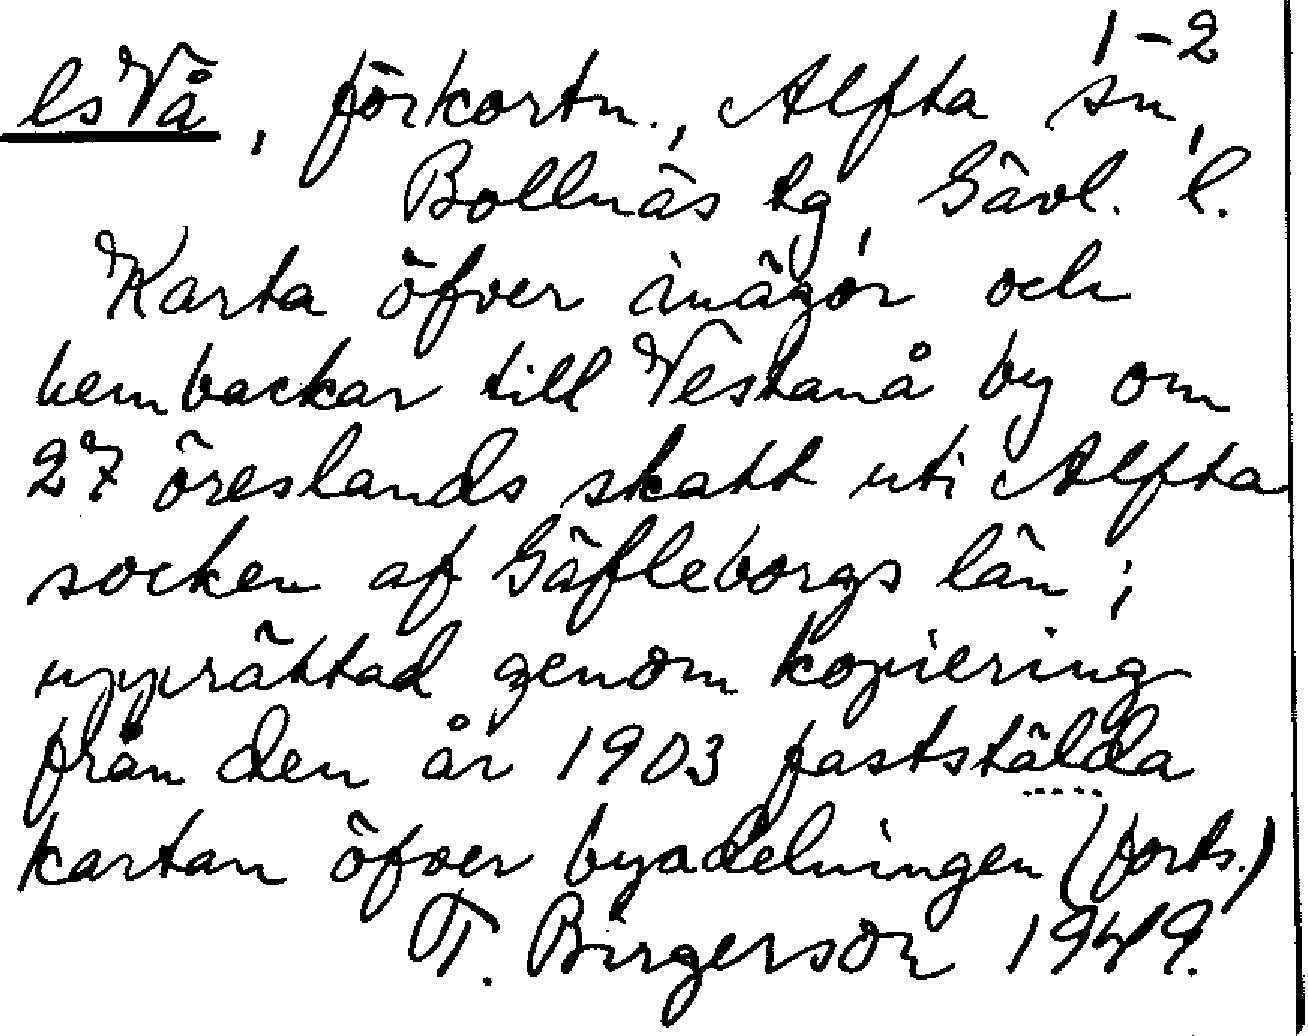 1-2
lsVå, förkortn., Alfta sn,
Bollnäs tg, Gävl. l.
Karta öfver inägor och
hembackar till Vestanå by om
27 öreslands skatt uti Alfta
socken af Gäfleborgs län;
upprättad genom kopiering
från den år 1903 faststälda
kartan öfver byadelningen (forts.)
T. Birgerson 1949.